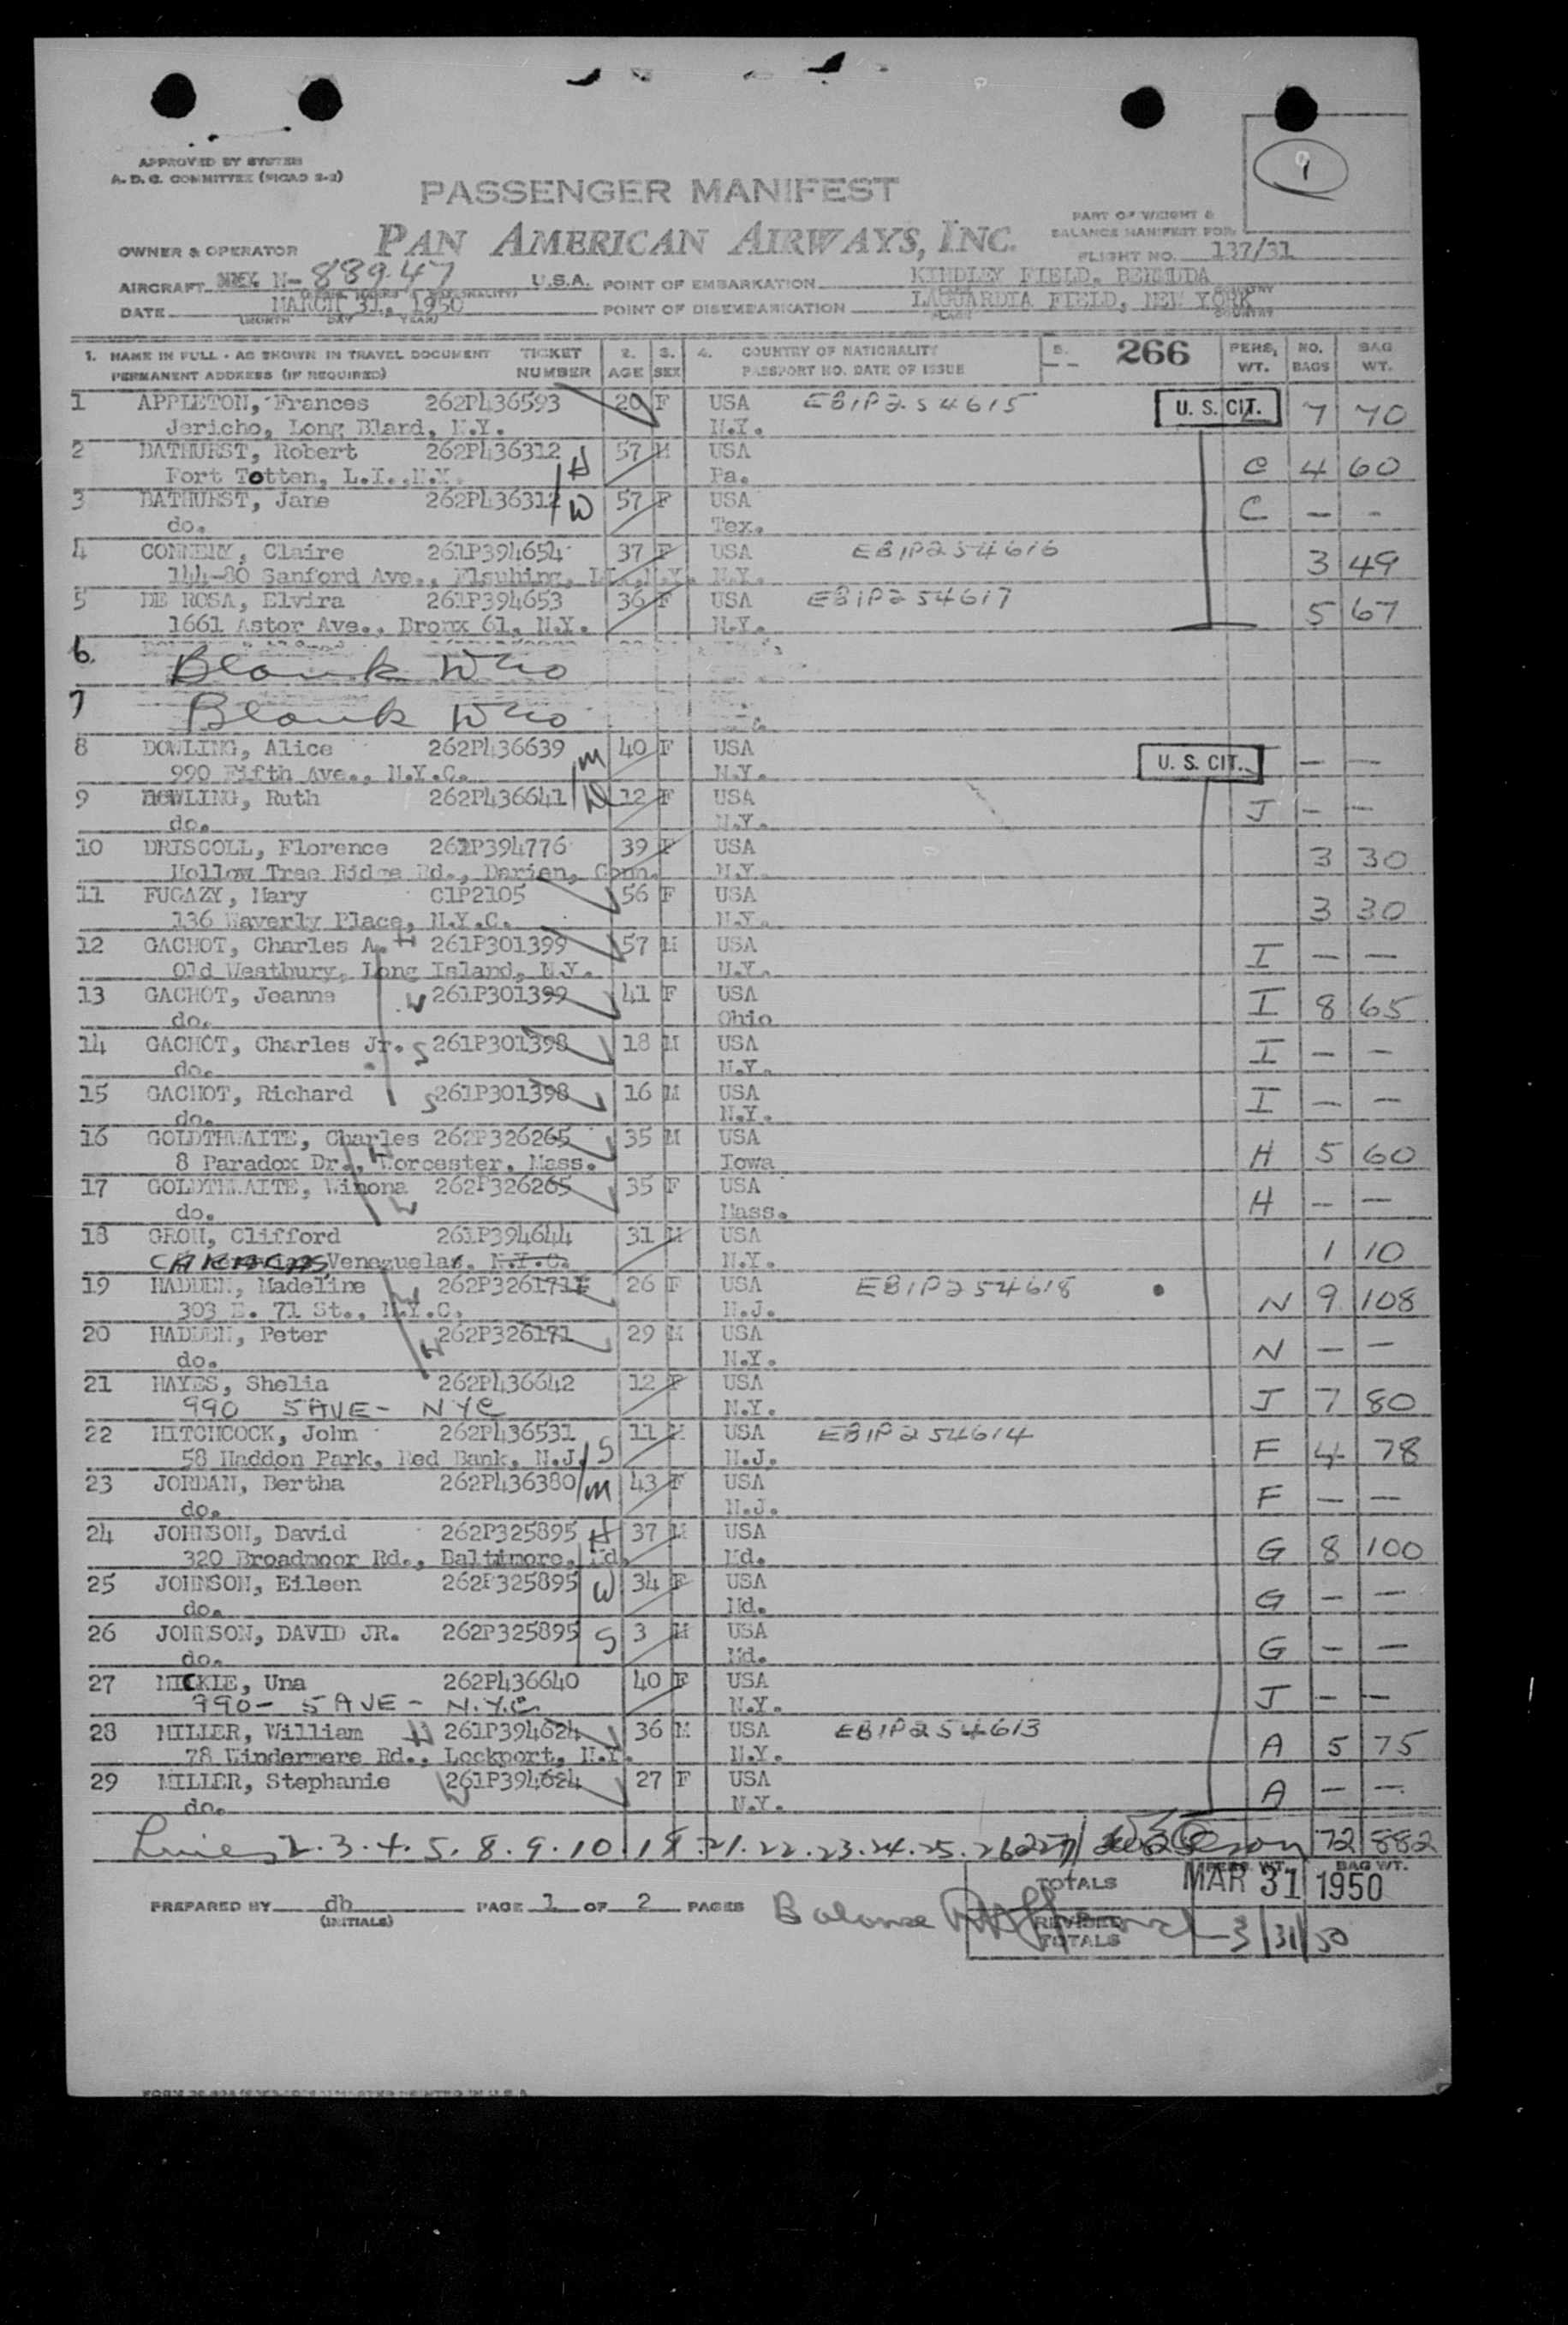 9
1
APPROVED BY SYSTEM
A. D. C. COMMITTEE (PICAO 2-2)
PASSENGER MANIFEST
PAN AMERICAN AIRWAYS, INC.
PART OF WEIGHT &
BALANCE MANIFEST FOR
FLIGHT NO. 137/31
OWNER & OPERATOR
AIRCRAFT N-88947 U.S.A. POINT OF EMBARKATION KINDLEY FIELD, BERMUDA
DATE MARCH 31, 1950 POINT OF DISEMBARKATION LAGUARDIA FIELD, NEW YORK
(MONTH DAY YEAR) PLACE COUNTRY
1. NAME IN FULL - AS SHOWN IN TRAVEL DOCUMENT TICKET 2. 3. 4. COUNTRY OF NATIONALITY 5. 266 PERS. NO. BAG
PERMANENT ADDRESS (IF REQUIRED) NUMBER AGE SEX PASSPORT NO. DATE OF ISSUE WT. BAGS WT.
1 APPLETON, Frances 262P436593 20 F USA EB1P254615 U. S. CIT. 7 70
Jericho, Long Bland, N.Y. N.Y.
2 BATHURST, Robert 262P436312 H 57 M USA C 4 60
Fort Totten, L.I.,N.Y. Pa.
3 BATHURST, Jane 262P436312 W 57 F USA C — -
do. Tex.
4 CONNERY, Claire 261P394654 37 F USA EB1P254616 3 49
144-80 Sanford Ave., Flsuhing, L.I.,N.Y. N.Y.
5 DE ROSA, Elvira 261P394653 36 F USA EB1P254617 5 67
1661 Astor Ave., Bronx 61, N.Y. N.Y.
6.
Blank
7
Blank
8 DOWLING, Alice 262P436639 M 40 F USA U. S. CIT. — —
990 Fifth Ave., N.Y.C. N.Y.
9 DOWLING, Ruth 262P436641 12 F USA J — —
do. N.Y.
10 DRISCOLL, Florence 261P394776 39 F USA 3 30
Hollow Tree Ridge Rd., Darien, Conn. N.Y.
11 FUGAZY, Mary C1P2105 56 F USA 3 30
136 Waverly Place, N.Y.C. N.Y.
12 GACHOT, Charles A. H 261P301399 57 M USA I — —
Old Westbury, Long Island, N.Y. N.Y.
13 GACHOT, Jeanne W 261P301399 41 F USA I 8 65
do. Ohio
14 GACHOT, Charles Jr. S 261P301398 18 M USA I — —
do. N.Y.
15 GACHOT, Richard S 261P301398 16 M USA I — —
do. N.Y.
16 GOLDTHWAITE, Charles 262P326265 35 M USA H 5 60
8 Paradox Dr., Worcester, Mass. H Iowa
17 GOLDTHWAITE, Winona 262P326265 35 F USA H — —
do. W Mass.
18 GROH, Clifford 261P394644 31 M USA 1 10
CARACAS Venezuela, N.Y.C. N.Y.
19 HADDEN, Madeline W 262P326171 26 F USA EB1P254618 N 9 108
303 E. 71 St., N.Y.C. N.J.
20 HADDEN, Peter H 262P326171 29 M USA N — —
do. N.Y.
21 HAYES, Shelia 262P436642 12 F USA J 7 80
990 5 AVE - NYC N.Y.
22 HITCHCOCK, John 262P436531 S 11 M USA EB1P254614 F 4 78
58 Haddon Park, Red Bank, N.J. N.J.
23 JORDAN, Bertha 262P436380 M 43 F USA F — —
do. N.J.
24 JOHNSON, David 262P325895 H 37 M USA G 8 100
320 Broadmoor Rd., Baltimore, Md. Md.
25 JOHNSON, Eileen 262P325895 W 34 F USA G — —
do. Md.
26 JOHNSON, DAVID JR. 262P325895 S 3 M USA G — —
do. Md.
27 MICKLE, Una 262P436640 40 F USA J — —
990 - 5 AVE - N.Y.C. N.Y.
28 MILLER, William H 261P394624 36 M USA EB1P254613 A 5 75
78 Windermere Rd., Lockport, N.Y. N.Y.
29 MILLER, Stephanie W 261P394624 27 F USA A — —
do. N.Y.
Lines 2.3.4.5.8.9.10.18.21.22.23.24.25.26 & 27 72 882
PERS. WT. BAG WT.
TOTALS MAR 31 1950
PREPARED BY db PAGE 1 OF 2 PAGES Balance
(INITIALS) REVISED
TOTALS 3/31/50